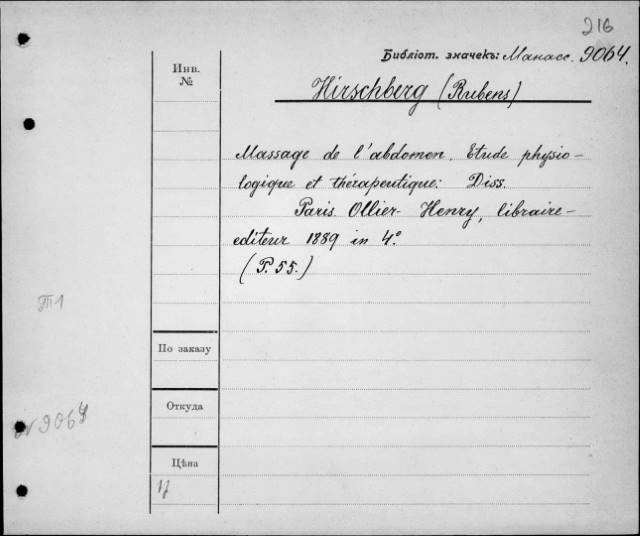 216
Библіот. значекъ: Манасс. 9064.
Инв.
№
Hirschberg (Rubens)
Massage de l'abdomen. Etude physio-
logique et thérapeutique: Diss.
Paris. Ollier-Henry, libraire-
editeur 1889 in 4°
(P. 55.)
По заказу
Откуда
9064
Цѣна